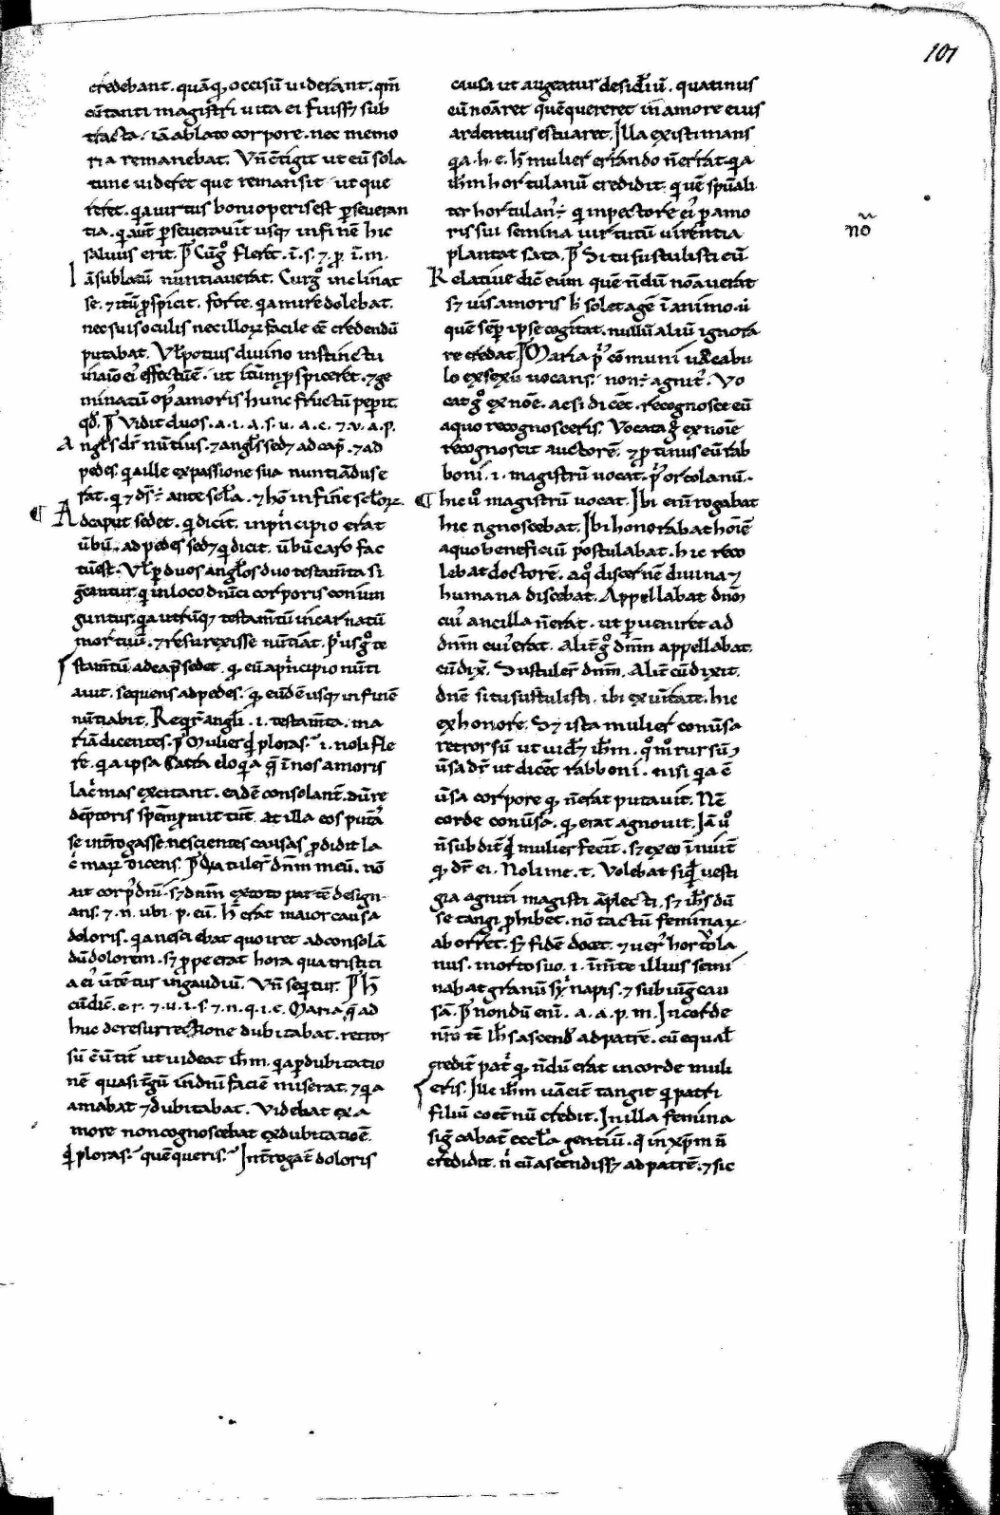 107
credebant. quāq; occisū uiderant. qm̄
cūtanti magistri uita ei fuiss; sub
tracta. iā ablato corpore. nec memo
ria remanebat. Vn̄ ētigit ut eū sola
tunc uideret que remansit ut que
reret. q̇a uirtus boni operis est pseueran
tia. q̇ aut̄ pseuerauit usq; in finē hic
saluus erit. P̄ Cūg° fleret. i. s. ⁊ p̄. i. m.
iā sublatū nūntiauerat. Curg° inclinat
se. ⁊ itū pspicit. forte. q̇a nure dolebat.
nec suis oculis nec illoꝝ facile eē credendū
putabat. Vl̄ potius diuino instinctu
in aiō ei' effectū ē. ut itūm pspiceret. ⁊ ge
minatū op' amoris hunc fructū pepit.
qd̄. P̄ Vidit duos. a. i. a. s. u. a. c. ⁊ u. a. p.
Angl's dr̄ nūtius. ⁊ angl's sed; ad cap̄. ⁊ ad
pedes. q̇a ille ex passione sua nuntiād' e
rat. q̇ ⁊ ds̄ ante sec̄la. ⁊ hō in fine sec̄loꝝ
Ad caput sedet. q̇ dicit. in pncipio erat
ūbū. ad pedes sed; q̇ dicit. ūbū caro fac
tū est. Vl̄ p duos angl'os duo testam̄ta si
gn̄cantur. q̇ in loco dn̄ici corporis coniun
guntur. q̇a utrūq; testam̄tū incarnatū
mortuū. ⁊ resurexisse nūtiat. P'us g° te
stam̄tū ad cap̄ sedet. q̇ eū a pncipio nūti
auit. sequens ad pedes. q̇ eūdē usq; in finē
nūtiabit. Req̇r̄ angl'i. i. testam̄ta. ma
riā dicentes. P̄ Mulier qd̄ ploras. i. noli fle
re. q̇a ipsa sacra eloq̇a q̄ in nos amoris
lac̄mas excitant. eadē consolant̄. dū re
dēptoris spem pmittūt. At illa eos putās
se int̄rogasse. nescientes causas pdidit la
c̄maꝝ dicens. P̄ Q̇a tuler̄ dn̄m meū. nō
ait corp' dn̄i. s; dn̄m ex toto partē design
ans. ⁊ n. ubi. p. eū. h̄ erat maior causa
doloris. q̇a nesciebat quo iret ad consolā
dū dolorem. s; ppe erat hora qua tristiti
a ei' ūtētur in gaudiū. Vn̄ seq̇tur. P̄ H̄
cū dic̄. c. r. ⁊ u. i. s. ⁊ n. q. i. e. Maria q̄ ad
huc de resurrectione dubitabat. retror
sū ēūtit̄ ut uideat ih̄m. q̇a p dubitatio
nē quasi t̄gū in dn̄i faciē miserat. ⁊ q̇a
amabat ⁊ dubitabat. Videbat ex a
more non cognoscebat ex dubitatiōe.
qd̄ ploras. quē queris. Int̄rogat̄ doloris
causa ut augeatur desid'iū. quatinus
eū noāret quē quereret in amore eius
ardentius estuaret. Illa existimans
q̇a. h. e. h̄ mulier errando n̄ errat. q̇a
ih̄m hortulanū credidit. q̇ uē spūali
ter hortulan'. q̇ in pectore ei' p amo
ris sui semina uirtutū uirentia
plantat sata. P̄ Si tu sustulisti eū
Relatiue dic̄ eum. quē n̄dū noāuerat
s; uis amoris h̄ solet agē in animo. ū
quē semp ipse cogitat. nullū aliū ignora
re credat. Maria p' cōmuni uocabu
lo ex sexu uocans. non agnit'. Vo
cat g° ex noīe. ac si dic̄et. recognosce eū
a quo recognosceris. Vocata g° ex noīe
recognoscit auctorē. ⁊ ptinus eū rab
boni. i. magistrū uocat. p' ortolanū.
hic ū° magistrū uocat. Ibi enī rogabat
hic agnoscebat. Ibi honorabat hoīem
a quo beneficiū postulabat. hic reco
lebat doctorē. a q° discernē diuina ⁊
humana discebat. Appellabat dn̄m
cui' ancilla n̄ erat. ut pueniret ad
dn̄m cui' erat. Alit̄ g° dn̄m appellabat.
cū dix̄. Sustuler̄ dn̄m. Alit̄ cū dixit.
dn̄e si tu sustulisti. ibi ex ūitate. hic
ex honore. S; ista mulier conūsa
retrorsū ut uid; ih̄m. q°m° rursū
ūsa dr̄ ut dic̄et rabboni. nisi q̇a c̄
ūsa corpore q̇ n̄ erat putauit. Nē
corde conūsa. q̇ erat agnouit. Iā ū°
n̄ subdit̄ qd̄ mulier fecit. s; ex eo inuit̄
q̇ dr̄ ei. Noli me. t. Volebat siqd̄ uesti
gia agniti magistri āplecti. s; ih̄s dū
se tangi phibet. nō tactū feminaꝝ
aborret. S; fidē docet. ⁊ uer' hortola
nus. in orto suo. i. in m̄te illius semi
nabat granū synapis. ⁊ subiūḡ cau
sā. P̄ nondū enī. a. a. p. m. In corde
nr̄o tc̄ ih̄s ascend̄ ad patrē. cū equal'
credit̄ patri. q̇ n̄dū erat in corde muli
eris. Ille ih̄m uāciт̄ tangit q̇ patri
filiū coet̄nū credit. In illa femina
sign̄cabat̄ eccl'a gentiū. q̄ in xp̄m n̄
credidit. n' cū ascendiss; ad patrē. ⁊ sic
nō